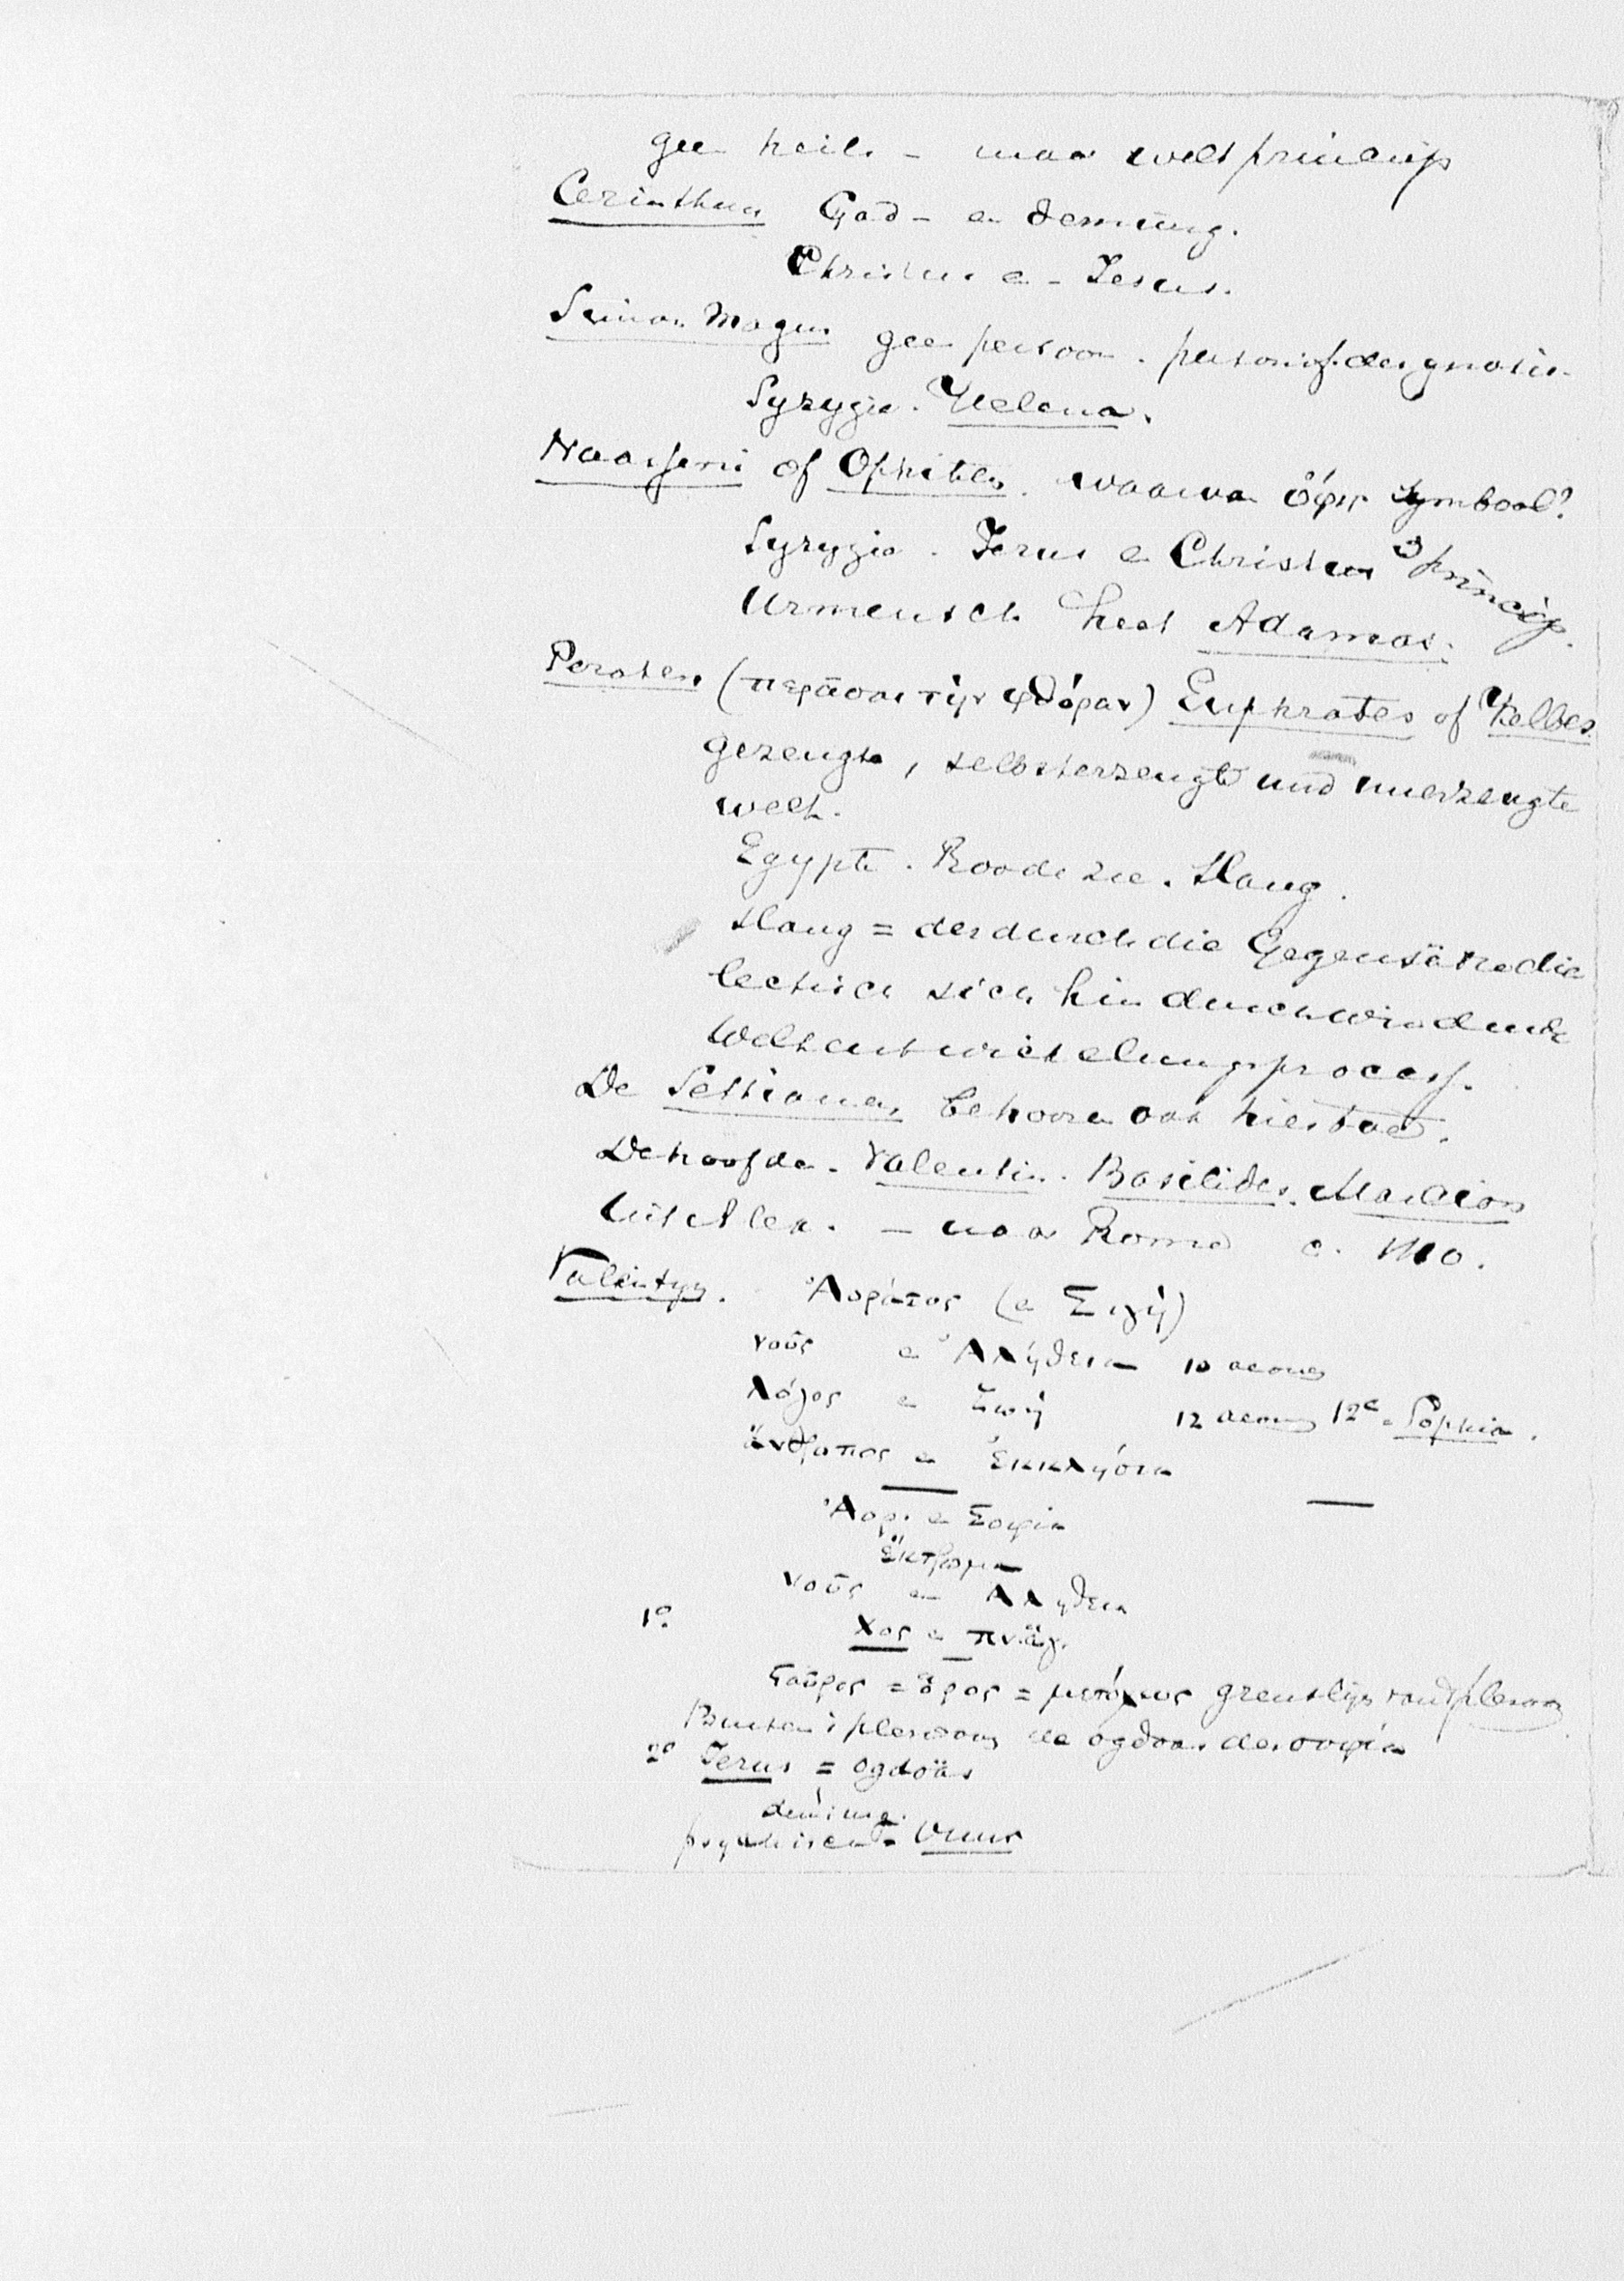 geen heils - maar weltprincip
Cerinthus God - en demiurg.
Christus en - Jesus.
Simon Magus geen persoon. personif. der gnosis.
Syzygie. Helena.
Naasseni of Ophiten. waarvan ὄφις symbool?
Syzygie. Jezus en Christus 3 princip.
Urmensch heet Adamas.
Peraten (περᾶσαι τὴν φθόραν) Euphrates of Kelbes
gezeugte, selbsterzeugte und unerzeugte
welt.
Egypte. Roode zee. Slang.
Slang = der durch die Gegensätze dia
lectisch sich hindurchwindende
Weltentwickelungsprocess.
De Sethianen behooren ook hiertoe.
De hoofden. Valentin. Basilides. Marcion
- naar Rome c. 140.
Valentyn. Ἀορατος (en Σιγή)
νοῦς en Ἀλήθεια 10 aeonen
λόγος en ζωή 12 aeonen 12e = Sophia.
ἄνθρωπος en ἐκκλησία
Ἀορ. en Σοφια
ἔκτρωμα
νοῦς en Αληθεια
1o. Χος en πν. ἁγ.
Σταῦρος = ὅρος = grenslijn van 't pleroma
Buiten 't pleroma de ogdoas der σοφία
2o Jezus = ogdoas
demiurg.
psychisch